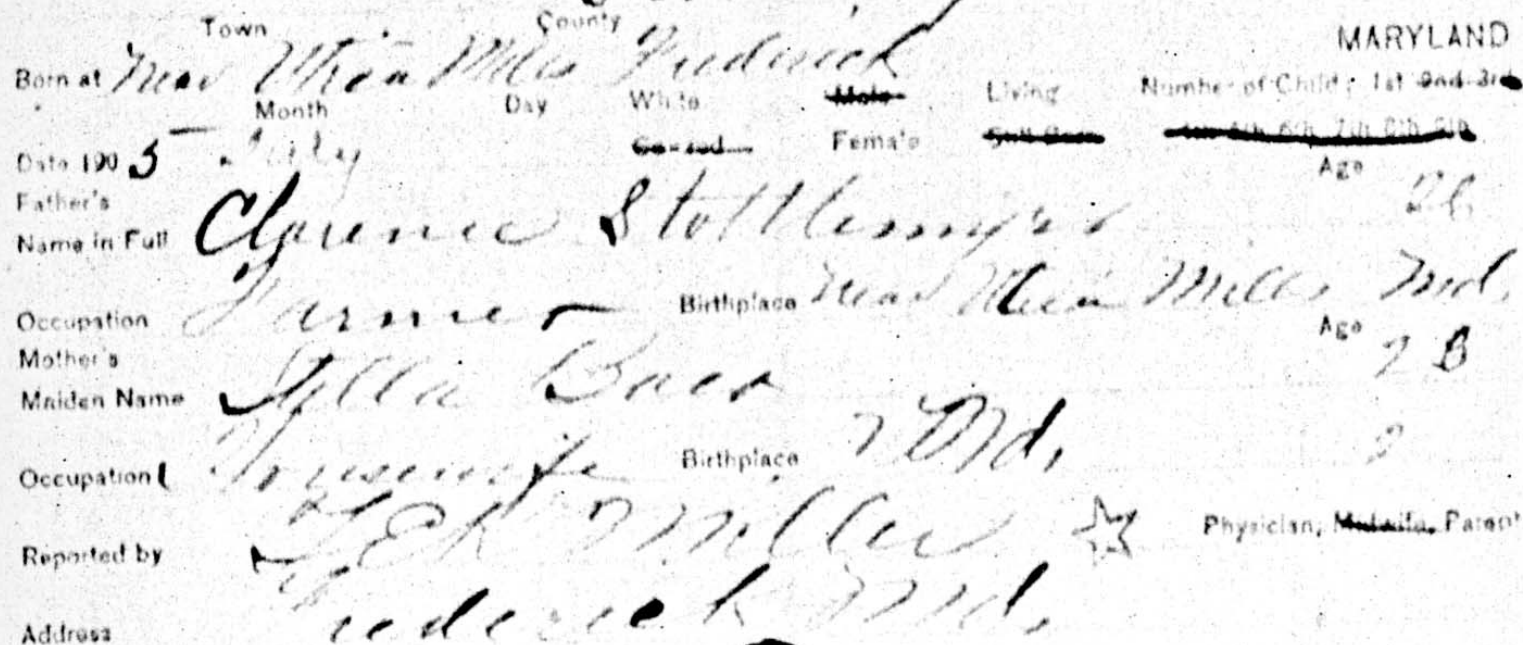 Town County
MARYLAND
Born at Near Utica Mills Frederick
Month Day White Male Living Number of Child: 1st 2nd 3rd
Date 1905 July Co-red Fema'e Still Born 4th 5th 6th 7th 8th 9th
Father's Age
Name in Full Clarence Stottlemyer
Occupation Farmer Birthplace Near Utica Mills Md.
Mother's Age
Maiden Name
Occupation Housewife Birthplace Md.
Reported by Miller Physician, Midwife, Parent
Address Frederick Md.